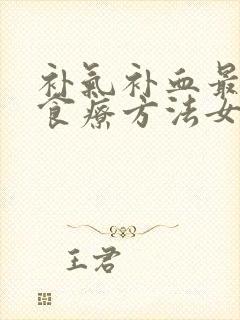 补氣补血最
食療方法女
王君